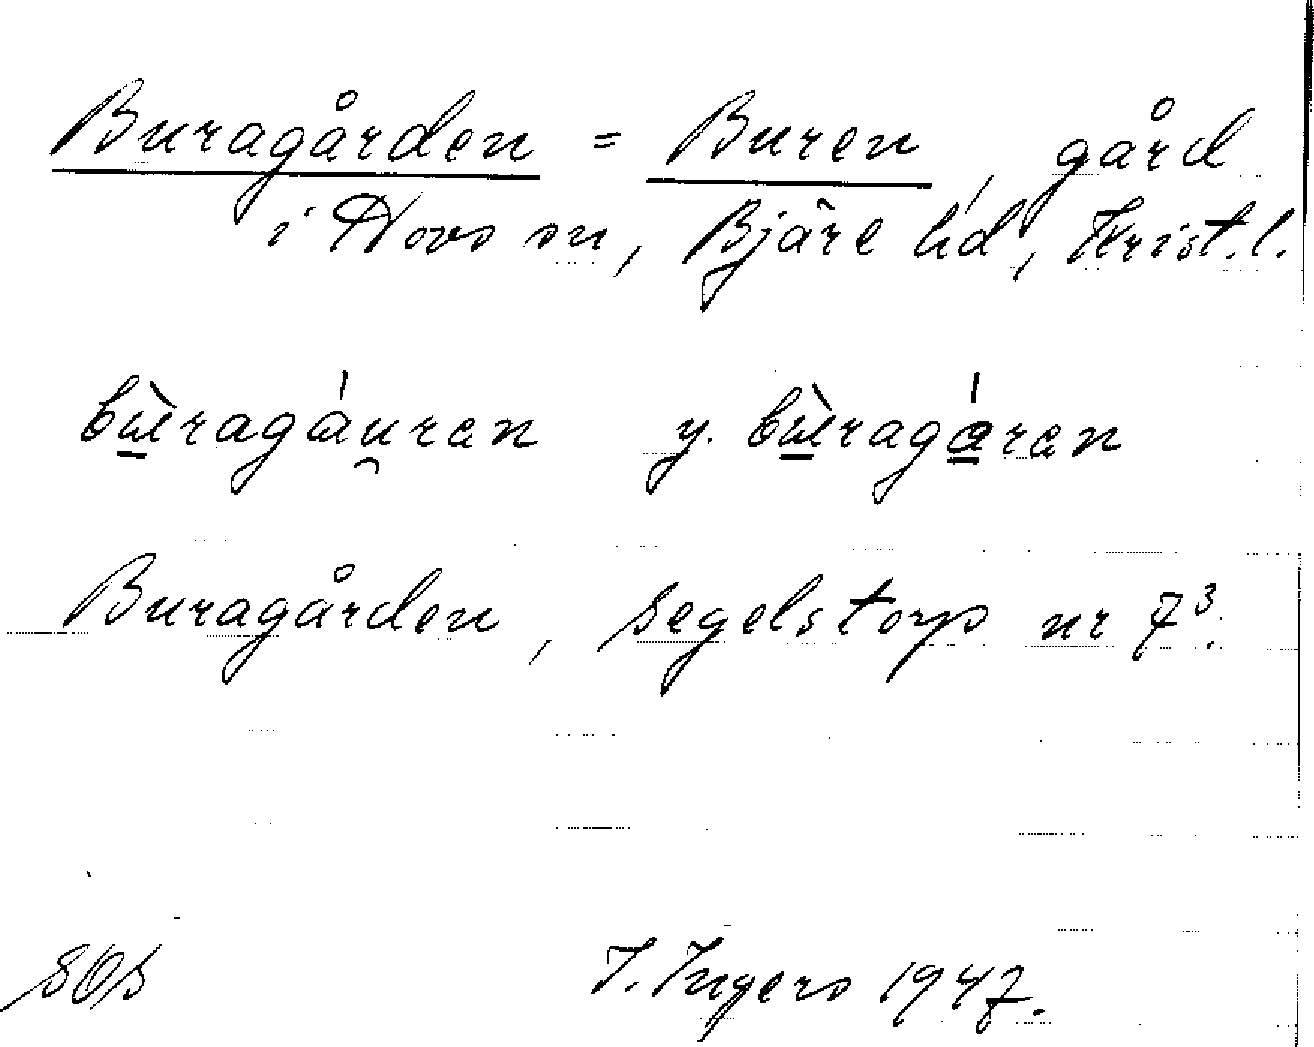 Buragården = Buren, gård
i Hovs sn, Bjäre hd, Krist. l.
bùragáuren y. bùragáren
Buragården, Segelstorp nr 7³.
SOS I. Ingers 1947.